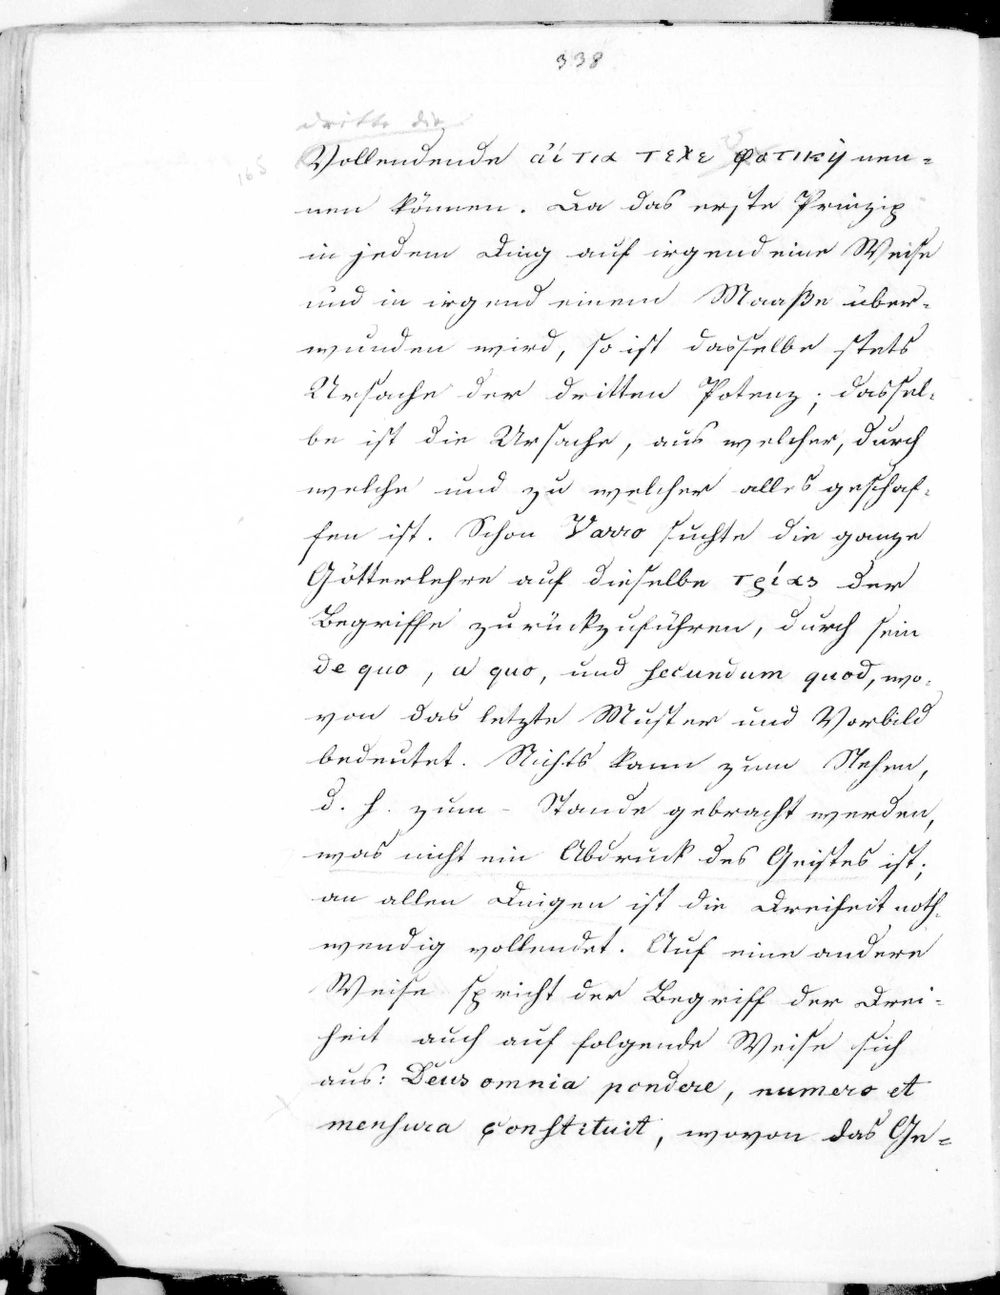 338
dritte die
Vollendende αἰτια τελε φοτικὴ nen=
165
nen können. Da das erste Prinzip
in jedem Ding auf irgend eine Weise
und in irgend einem Maaße über=
wunden wird, so ist dasselbe stets
Ursache der dritten Potenz; dassel=
be ist die Ursache, aus welcher, durch
welche und zu welcher alles geschaf=
fen ist. Schon Varro suchte die ganze
Götterlehre auf dieselbe τρίας der
Begriffe zurückzuführen, durch sein
de quo, a quo, und secundum quod, wo=
von das letzte Muster und Vorbild
bedeutet. Nichts kann zum Stehen,
d. h. zum - Stande gebracht werden,
was nicht ein Abdruck des Geistes ist;
an allen Dingen ist die Dreiheit noth=
wendig vollendet. Auf eine andere
Weise spricht der Begriff der Drei=
heit auch auf folgende Weise sich
aus: Deus omnia pondere, numero et
mensura constituit, wovon das Ge=